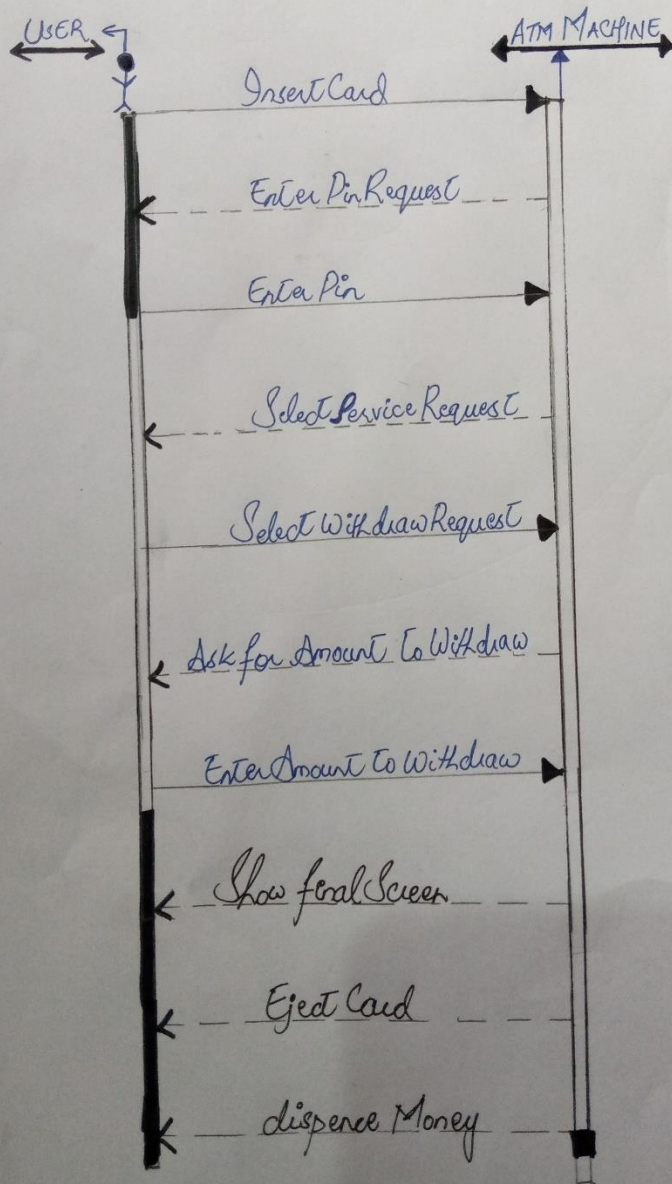 USER
ATM MACHINE
Insert Card
Enter Pin Request
Enter Pin
Select Service Request
Select Withdraw Request
Ask for Amount To Withdraw
Enter Amount To Withdraw
Show final Screen
Eject Card
dispence Money